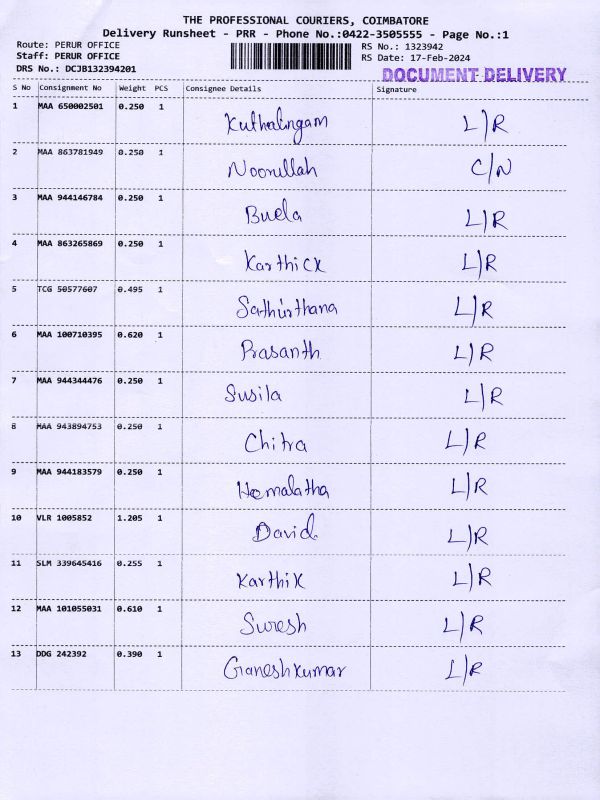 THE PROFESSIONAL COURIERS, COIMBATORE
Delivery Runsheet - PRR - Phone No.:0422-3505555 - Page No.:1
Route: PERUR OFFICE RS No.: 1323942
Staff: PERUR OFFICE RS Date: 17-Feb-2024
DRS No.: DCJB132394201 DOCUMENT DELIVERY
S No Consignment No Weight PCS Consignee Details Signature
1 MAA 650002501 0.250 1 Kuthalingam L/R
2 MAA 863781949 0.250 1 Noorullah C/N
3 MAA 944146784 0.250 1 Buela L/R
4 MAA 863265869 0.250 1 Karthick L/R
5 TCG 50577607 0.495 1 Sathurthana L/R
6 MAA 100710395 0.620 1 Prasanth L/R
7 MAA 944344476 0.250 1 Susila L/R
8 MAA 943894753 0.250 1 Chitra L/R
9 MAA 944183579 0.250 1 Hemalatha L/R
10 VLR 1005852 1.205 1 David L/R
11 SLM 339645416 0.255 1 Karthik L/R
12 MAA 101055031 0.610 1 Suresh L/R
13 DDG 242392 0.390 1 Ganeshkumar L/R